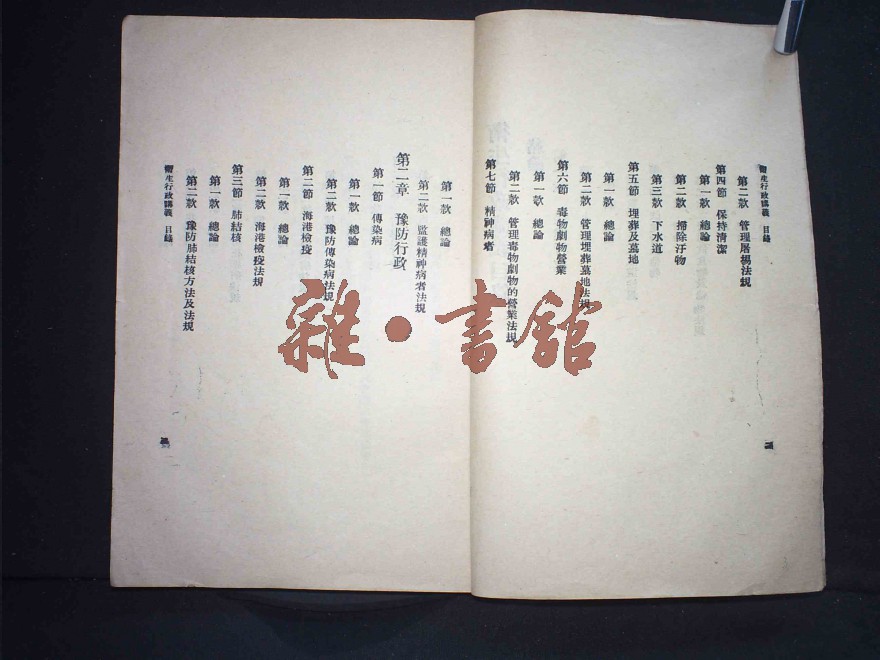 衞生行政講義 目錄
第二款 管理屠場法規
第四節 保持清潔
第一款 總論
第二款 掃除汙物
第三款 下水道
第五節 埋葬及墓地
第一款 總論
第二款 管理埋葬墓地法規
第六節 毒物劇物營業
第一款 總論
第二款 管理毒物劇物的營業法規
第七節 精神病者
第一款 總論
第二款 監護精神病者法規
第二章 豫防行政
第一節 傳染病
第一款 總論
第二款 豫防傳染病法規
第二節 海港檢疫
第一款 總論
第二款 海港檢疫法規
第三節 肺結核
第一款 總論
第二款 豫防肺結核方法及法規
衞生行政講義 目錄
雜·書館